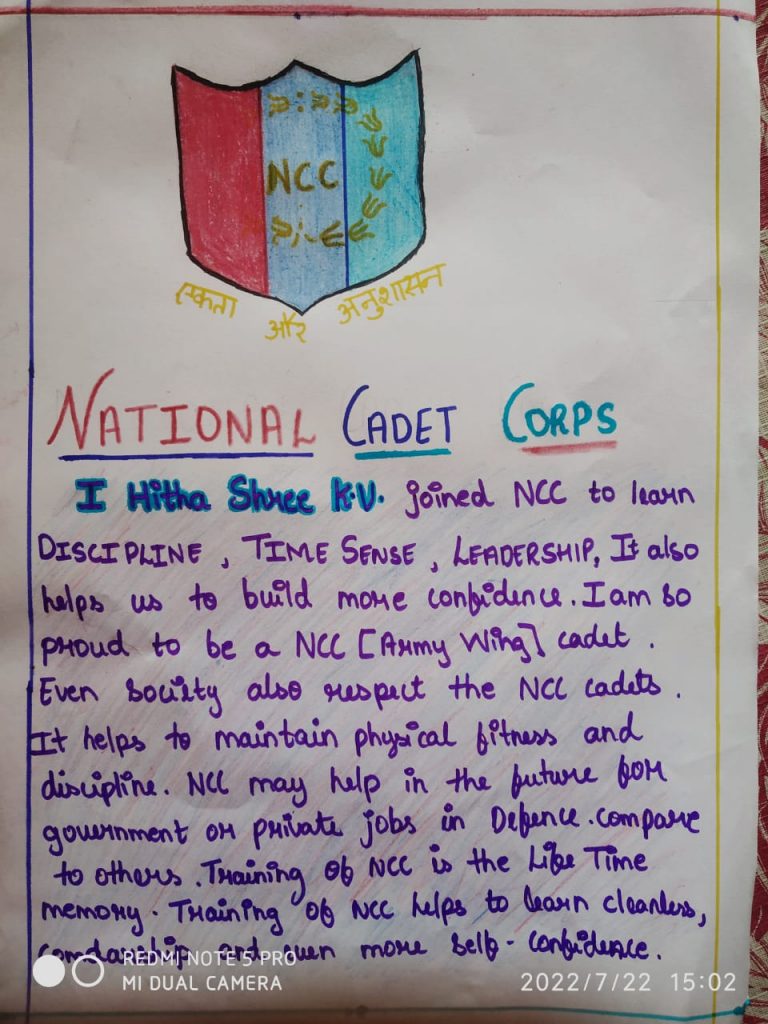 NCC
एकता और अनुशासन
NATIONAL CADET CORPS
I Hitha Shree K.V. joined NCC to learn
DISCIPLINE, TIME SENSE, LEADERSHIP, It also
helps us to build more confidence. I am so
proud to be a NCC [Army Wing] cadet.
Even society also respect the NCC cadets.
It helps to maintain physical fitness and
discipline. NCC may help in the future for
government or private jobs in Defence. compare
to others. Training of NCC is the Life Time
memory. Training of NCC helps to learn cleanless,
and even more self-confidence.
REDMI NOTE 5 PRO
MI DUAL CAMERA
2022/7/22 15:02